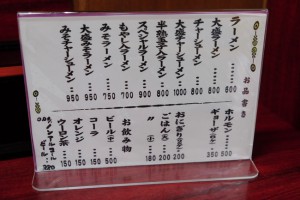 お品書き
ラーメン……600
大盛ラーメン……700
チャーシューメン……800
大盛チャーシューメン……1000
半熟玉子入ラーメン……700
スペシャルラーメン……900
もやし入ラーメン……700
みそラーメン……750
大盛みそラーメン……850
みそチャーシューメン……950
ホルモン……350
ギョーザ……500
おにぎり……200
ごはん……200
〃 (小)……180
お飲み物
ビール……500
コーラ……150
オレンジ……150
ウーロン茶……150
ノンアルコールビール……350